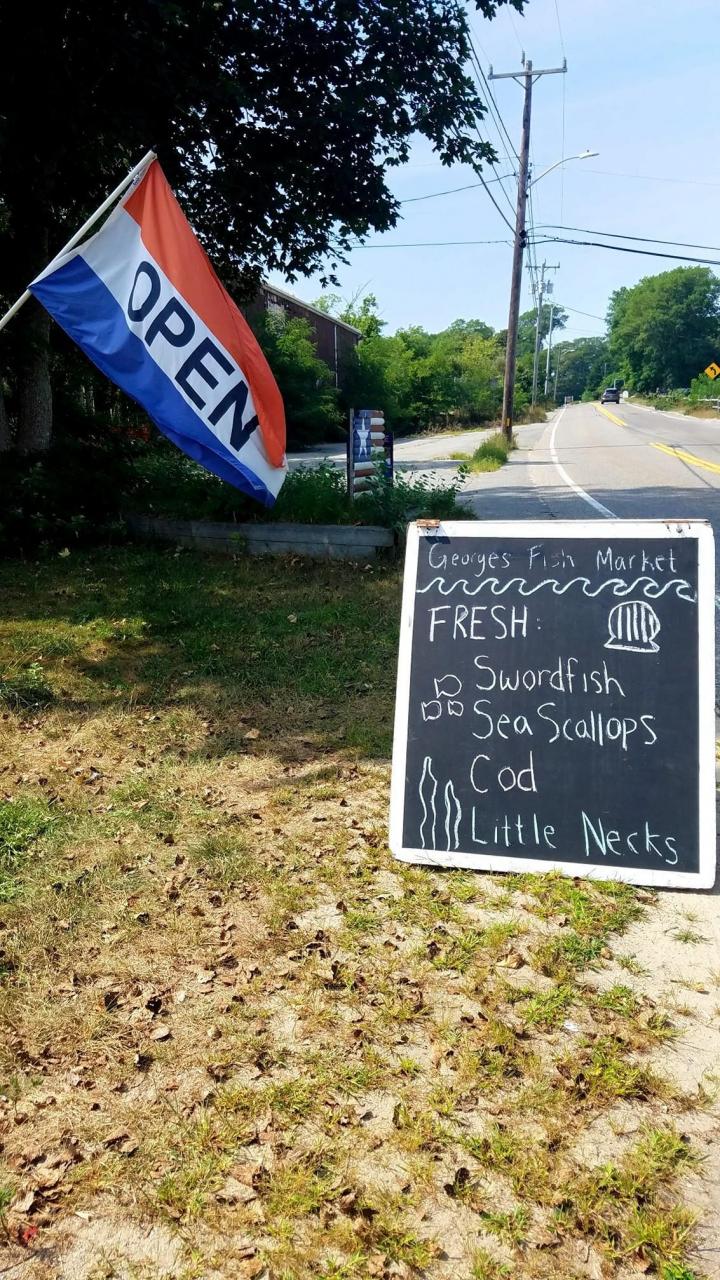 OPEN
Georges Fish Market
FRESH:
Swordfish
Sea Scallops
Cod
Little Necks